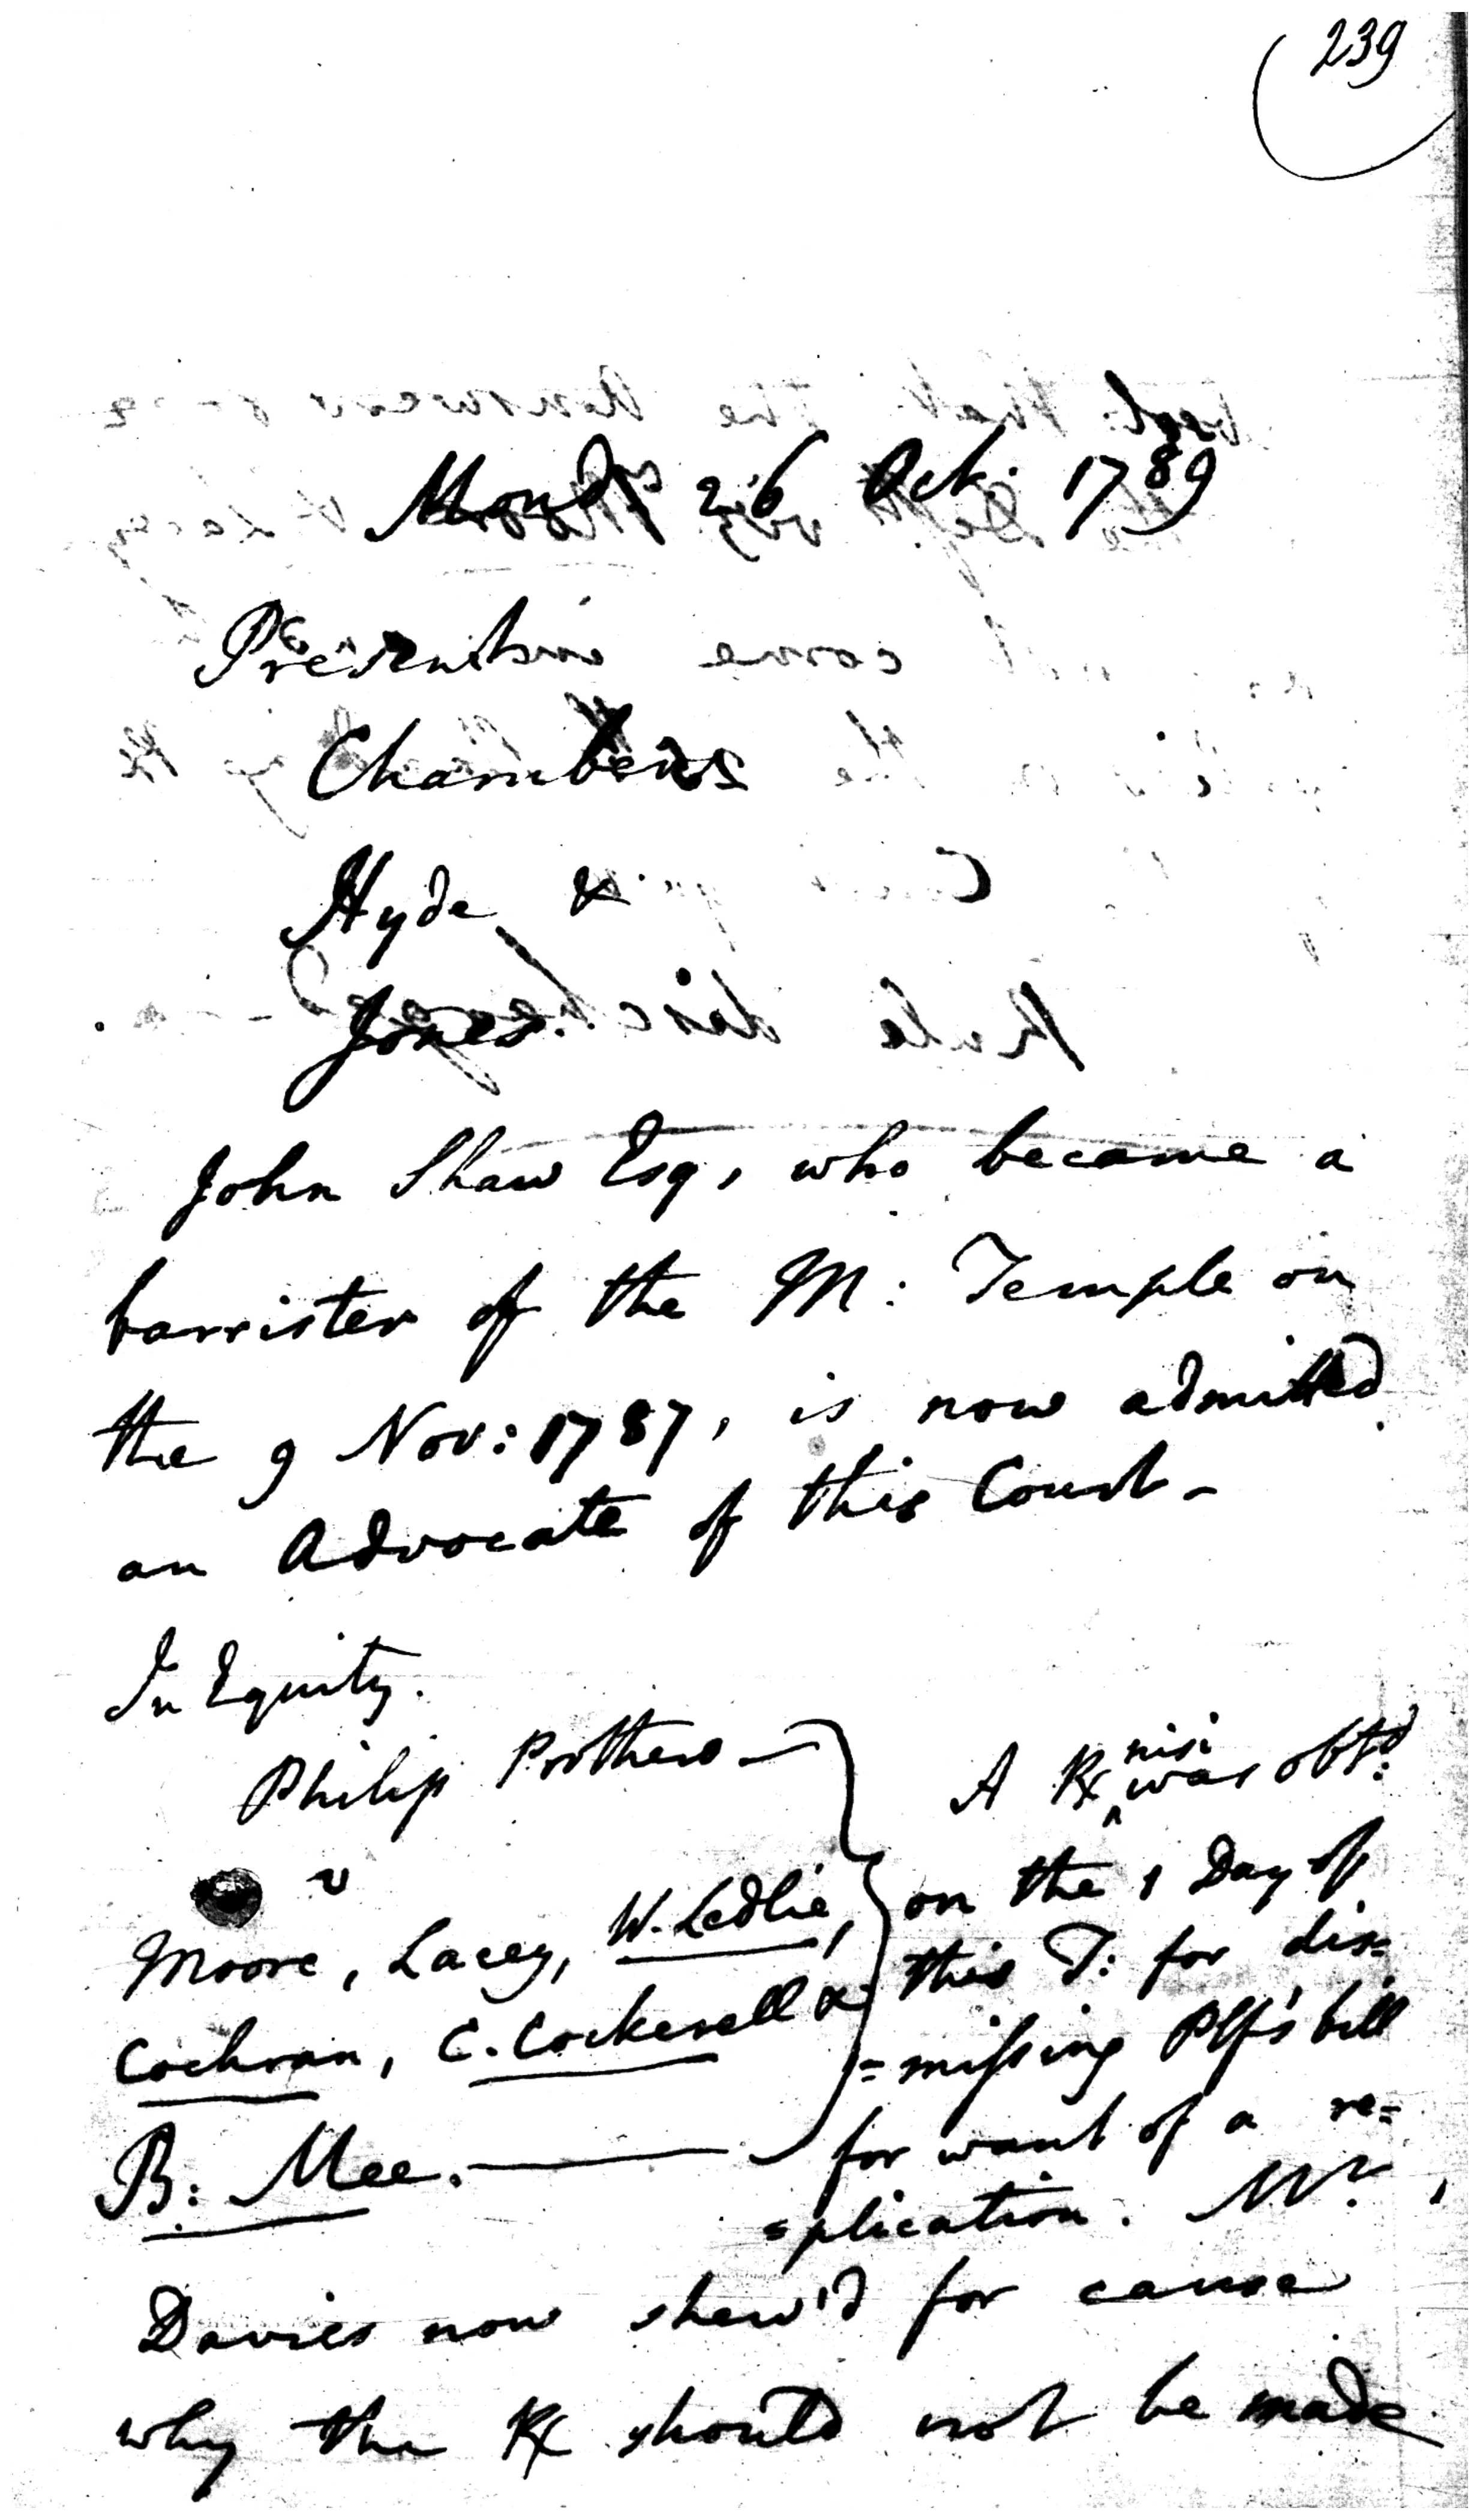 239
Mond 26 Oct: 1789
Present
Chambers
Hyde &
Jones.
John Shaw Esq, who became a
barrister of the M: Temple on
the 9 Nov: 1787, is now admitted
an Advocate of this Court -
In Equity.
Philip Prothero
v
Moore, Lacey, W. Ledlie,
Cochran, C. Cockerell &
B: Mee.
A R nisi was obtd:
on the 1 Day of
this T: for dis=
=missing Plf's bill
for want of a re=
=plication. Mr.
Davies now shew'd for cause
why the R should not be made